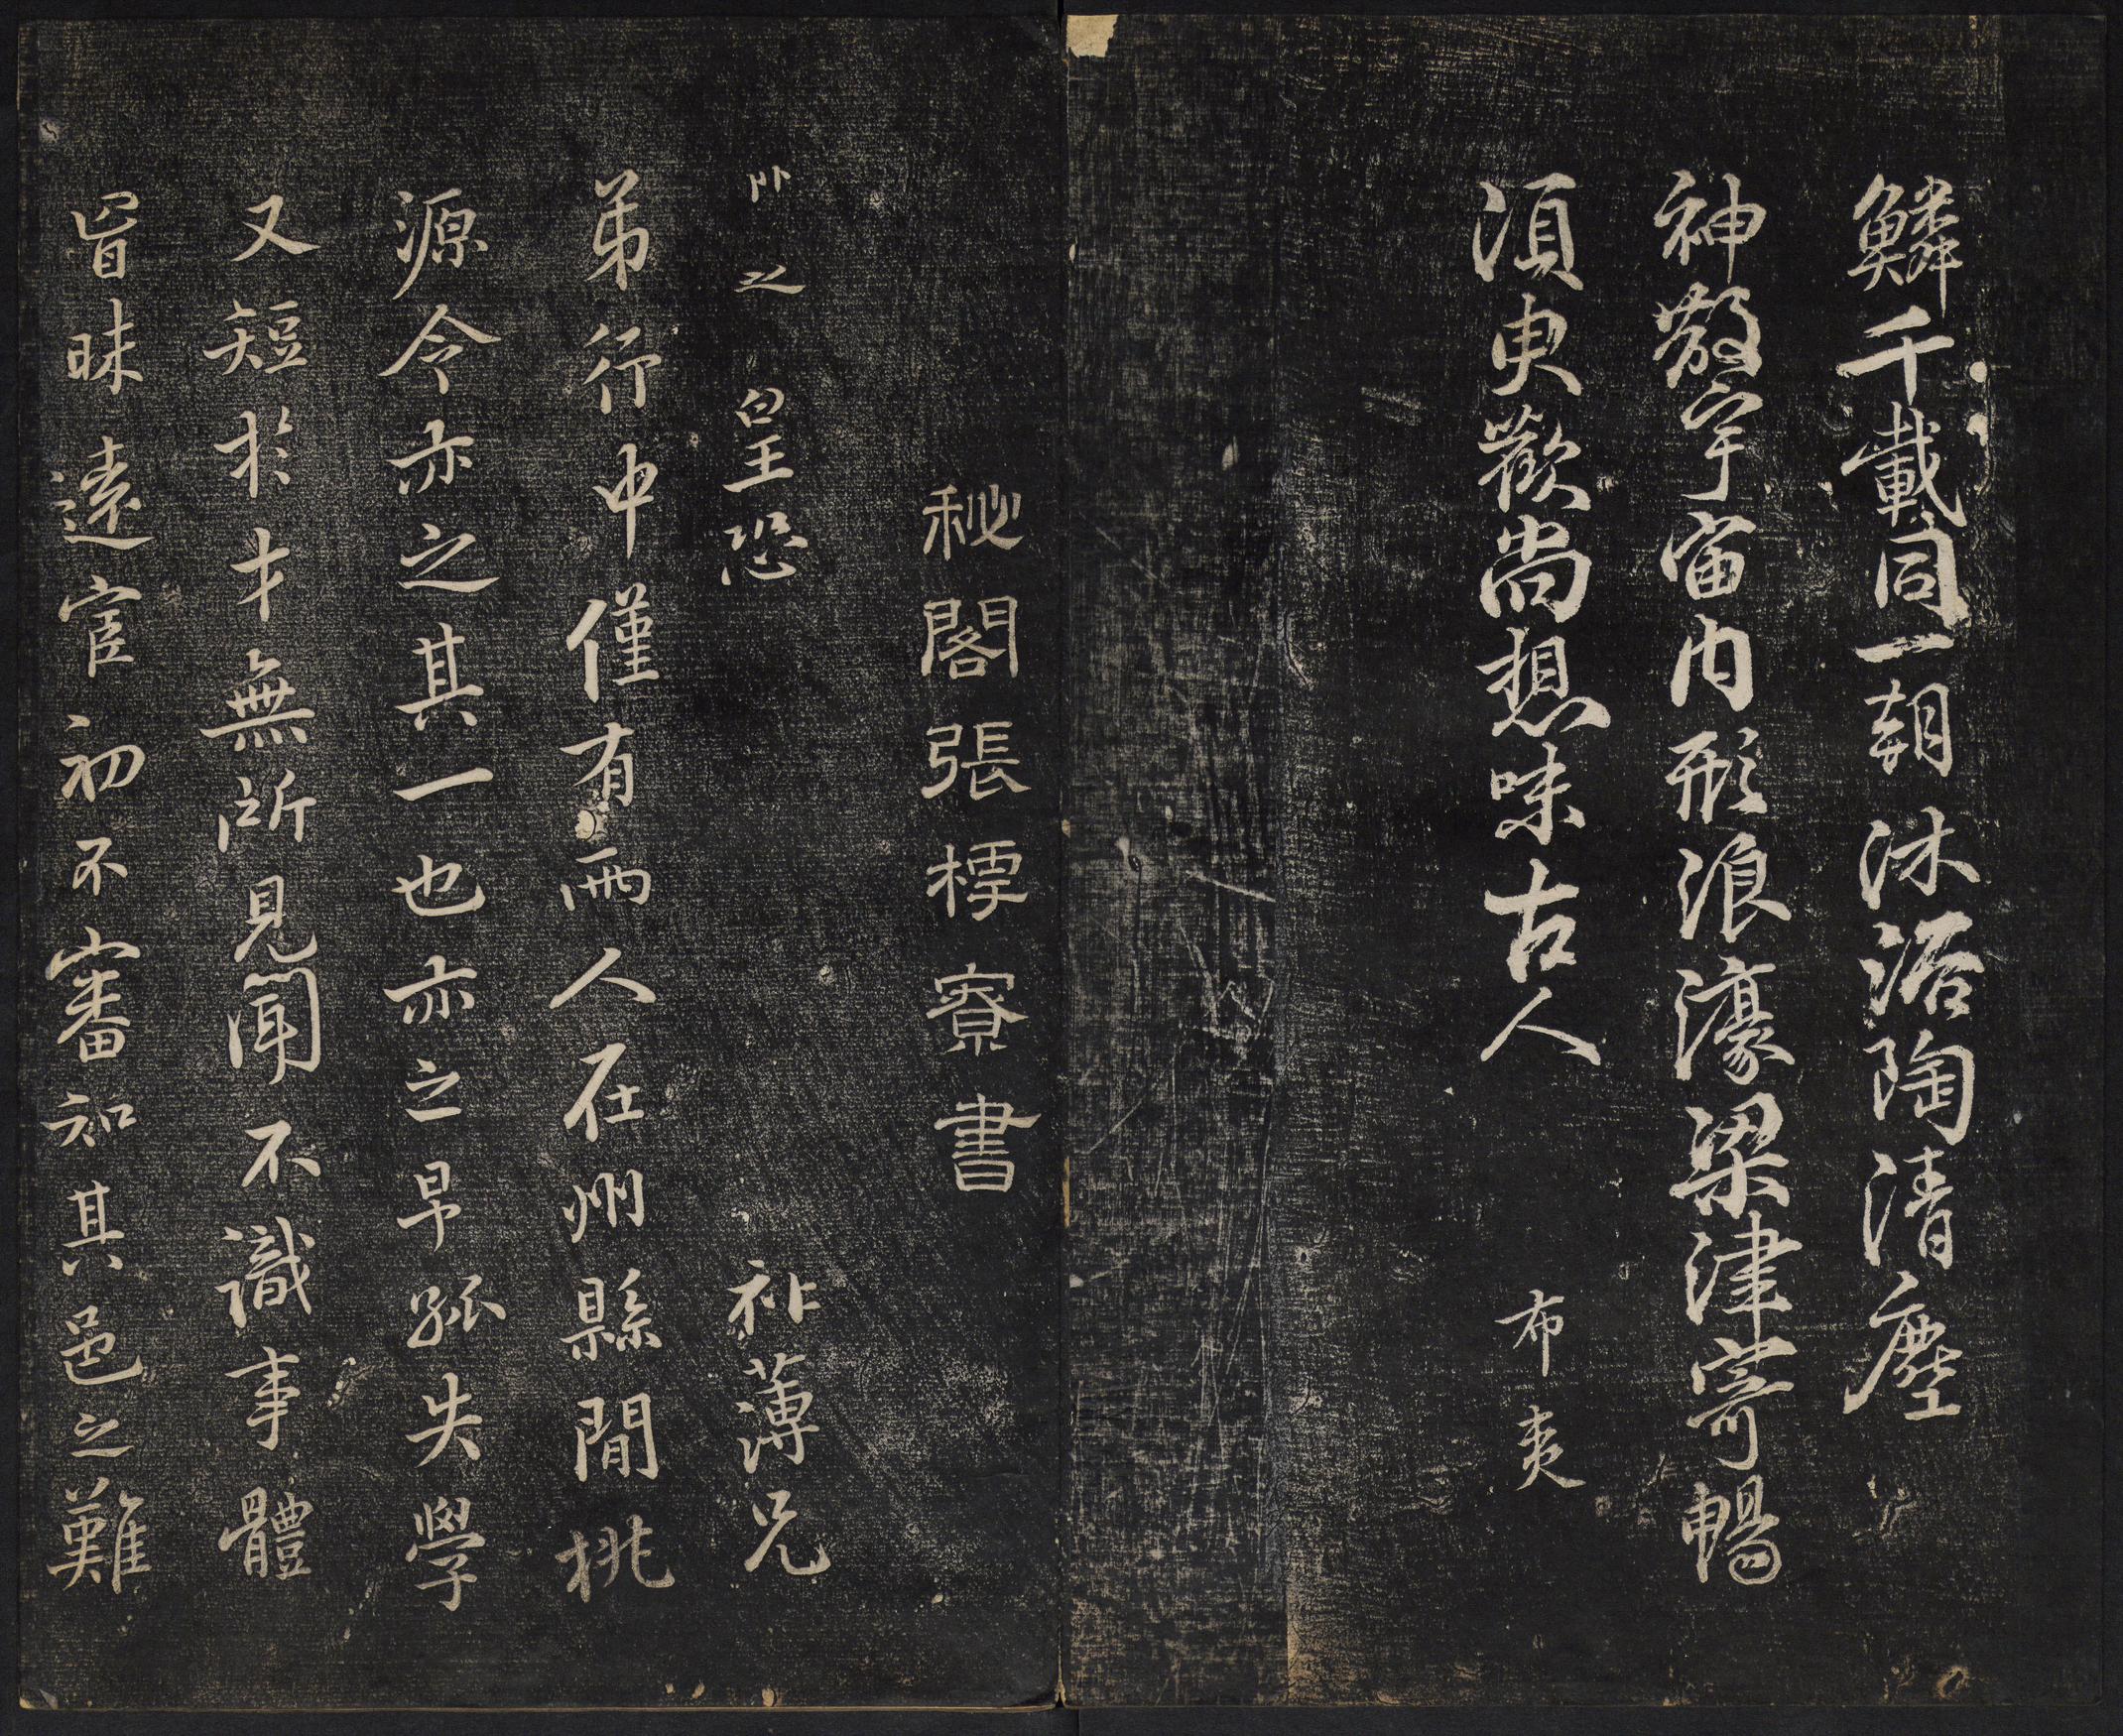 鱗千載同一朝沐浴陶清塵
神散宇宙內形浪濠梁津寄暢
須臾歡尚想味古人 布夷
秘閣張樗寮書
即之皇恐 祉薄兄
弟行中僅有兩人在州縣間桃
源令亦之其一也亦之早孤失學
又短於才無所見聞不識事體
冒昧遠宦初不審知其邑之難